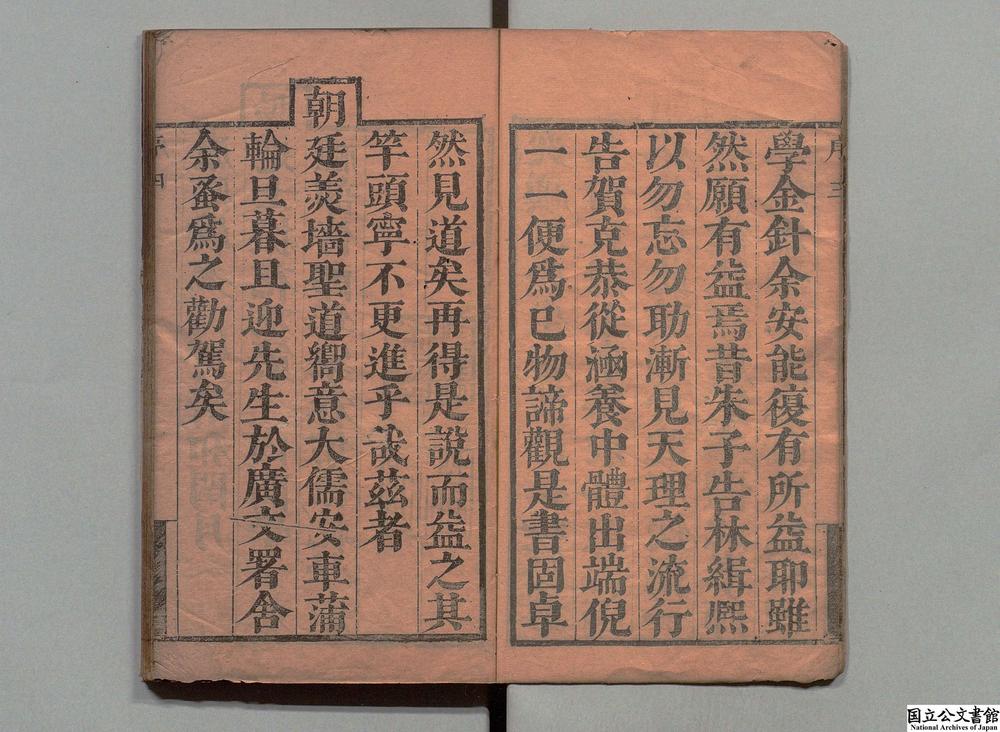 序 三
學金針余安能復有所益耶雖
然願有益焉昔朱子告林緝熈
以勿忘勿助漸見天理之流行
告賀克恭從涵養中體出端倪
一一便爲已物諦觀是書固卓
然見道矣再得是說而益之其
竿頭寧不更進乎哉茲者
朝廷羮墻聖道嚮意大儒安車蒲
輪旦暮且迎先生於廣文署舍
余蚤爲之勸駕矣
序 四
国立公文書館
National Archives of Japan